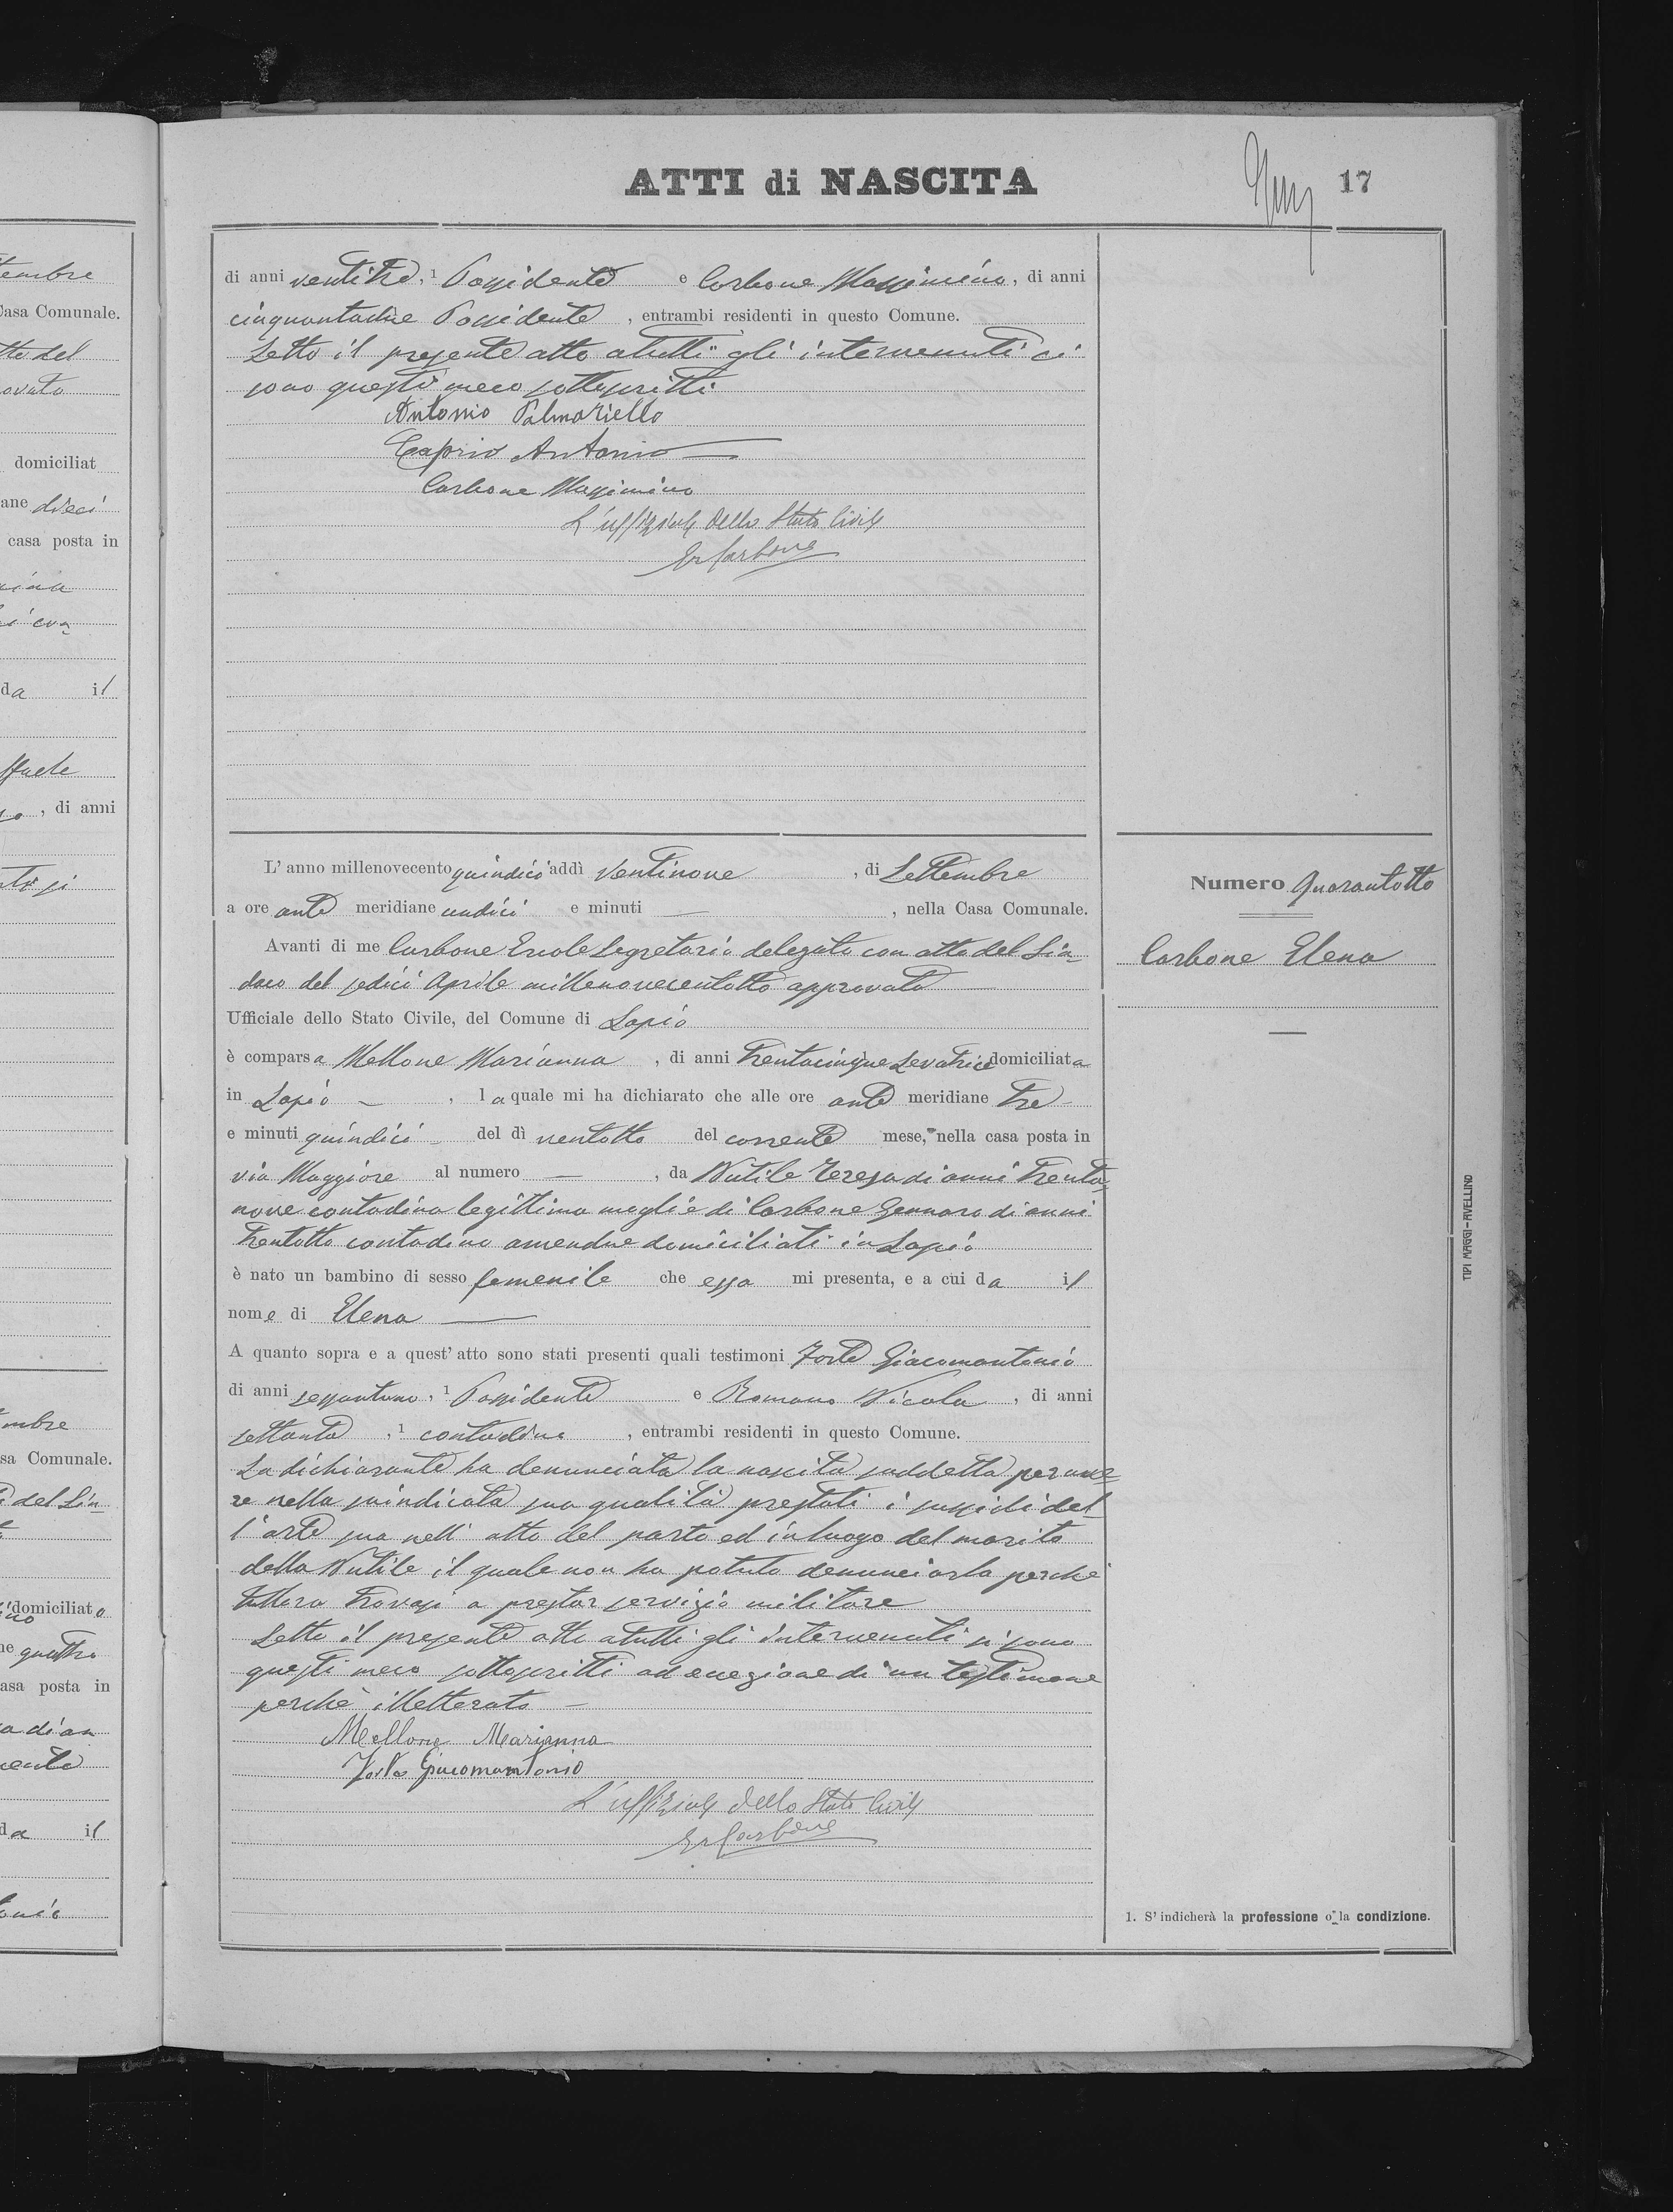 ATTI di NASCITA
17
di anni ventitre, 1 Possidente e Carbone Massimino, di anni
cinquantadue Possidente, entrambi residenti in questo Comune.
Letto il presente atto a tutti gli intervenuti si
sono questi meco sottoscritti
Antonio Palmariello
Caprio Antonio
Carbone Massimino
L'uffiziale dello Stato Civile
Er Carbone
L'anno millenovecento quindici addì ventinove, di Settembre
a ore ante meridiane undici e minuti —, nella Casa Comunale.
Avanti di me Carbone Ercole Segretario delegato con atto del Sin-
daco del sedici Aprile millenovecentotto approvato —
Ufficiale dello Stato Civile, del Comune di Lapio
è comparsa Mellone Marianna, di anni trentacinque Levatrice domiciliata
in Lapio —, la quale mi ha dichiarato che alle ore ante meridiane tre —
e minuti quindici — del dì ventotto del corrente mese, nella casa posta in
via Maggiore al numero —, da Nutile Teresa di anni trenta-
nove contadina legittima moglie di Carbone Gennaro di anni
trentotto contadino amendue domiciliati in Lapio
è nato un bambino di sesso femenile che essa mi presenta, e a cui da il
nome di Elena —
A quanto sopra e a quest'atto sono stati presenti quali testimoni Forte Giacomantonio
di anni sessantuno, 1 Possidente e Romano Nicola, di anni
settanta, 1 contadino, entrambi residenti in questo Comune.
La dichiarante ha denunciata la nascita suddetta per ave-
re nella suindicata sua qualità prestati i sussidi del-
l'arte sua nell'atto del parto ed in luogo del marito
della Nutile il quale non ha potuto denunciarla perché
tuttora trovasi a prestar servizio militare
Letto il presente atto a tutti gli intervenuti si sono
questi meco sottoscritti ad eccezione di un testimone
perché illetterato —
Mellone Marianna
Forte Giacomantonio
L'uffiziale dello Stato Civile
Er Carbone
Numero Quarantotto
Carbone Elena
1. S'indicherà la professione o la condizione.
TIPI MAGGI-AVELLINO
tembre
Casa Comunale.
tto del
ovato
domiciliat
ane dieci
casa posta in
da il
ffaele
, di anni
embre
sa Comunale.
del Sin-
domiciliato
ne quattro
asa posta in
da il
onio